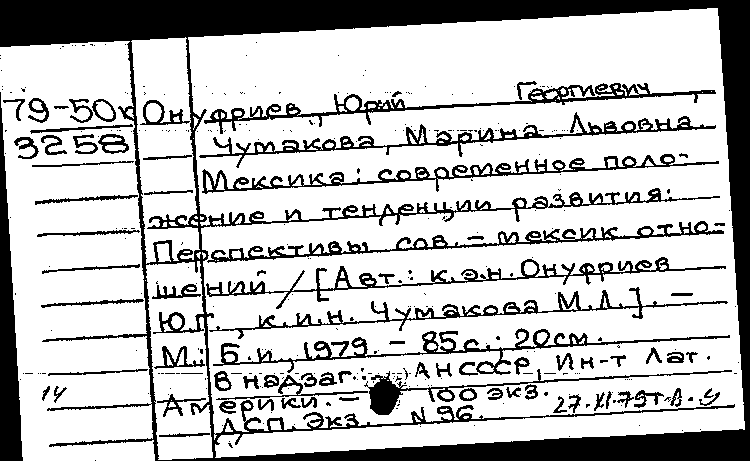 79-50к Онуфриев, Юрий Георгиевич,
3258 Чумакова, Марина Львовна.
Мексика: современное поло-
жение и тенденции развития:
Перспективы сов.-мексик. отно-
шений / [Авт.: к.э.н. Онуфриев
Ю.Г., к.и.н. Чумакова М.Л.]. —
М.: Б.и., 1979. - 85с.; 20см.
В надзаг.: АН СССР, Ин-т Лат.
14 Америки. — 100 экз.
ДСП. Экз. N 96. 27.XI.79г.